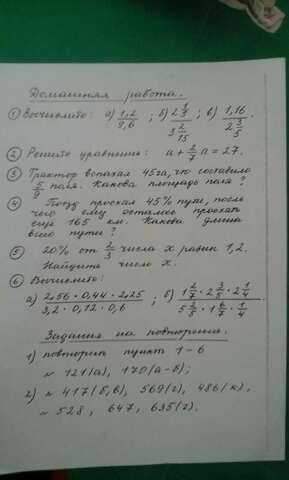 Домашняя работа.
① Вычислить: а) 1,2/9,6 ; б) 2 2/5 / 3 2/15 ; в) 1,16 / 2 3/5 .
② Решите уравнение: a + 2/7 a = 27.
③ Трактор вспахал 45га, что составило
5/9 поля. Какова площадь поля?
④ Поезд проехал 45% пути, после
чего ему осталось проехать
ещё 165 км. Какова длина
всего пути?
⑤ 20% от 2/3 числа x равны 1,2.
Найдите число x.
⑥ Вычислить:
а) 2,56 · 0,44 · 2,25 / 3,2 · 0,12 · 0,6 ; б) 1 2/7 · 2 3/5 · 2 1/4 / 5 2/5 · 1 6/7 · 1/4 .
Задания на повторение.
1) повторить пункт 1 – 6
№ 121(а), 170(а-в);
2) № 417(б,в), 569(г), 486(к),
№ 528, 647, 635(г).